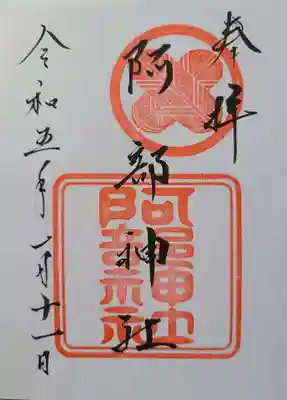 奉拝
阿部神社
阿部神社
令和五年一月十一日